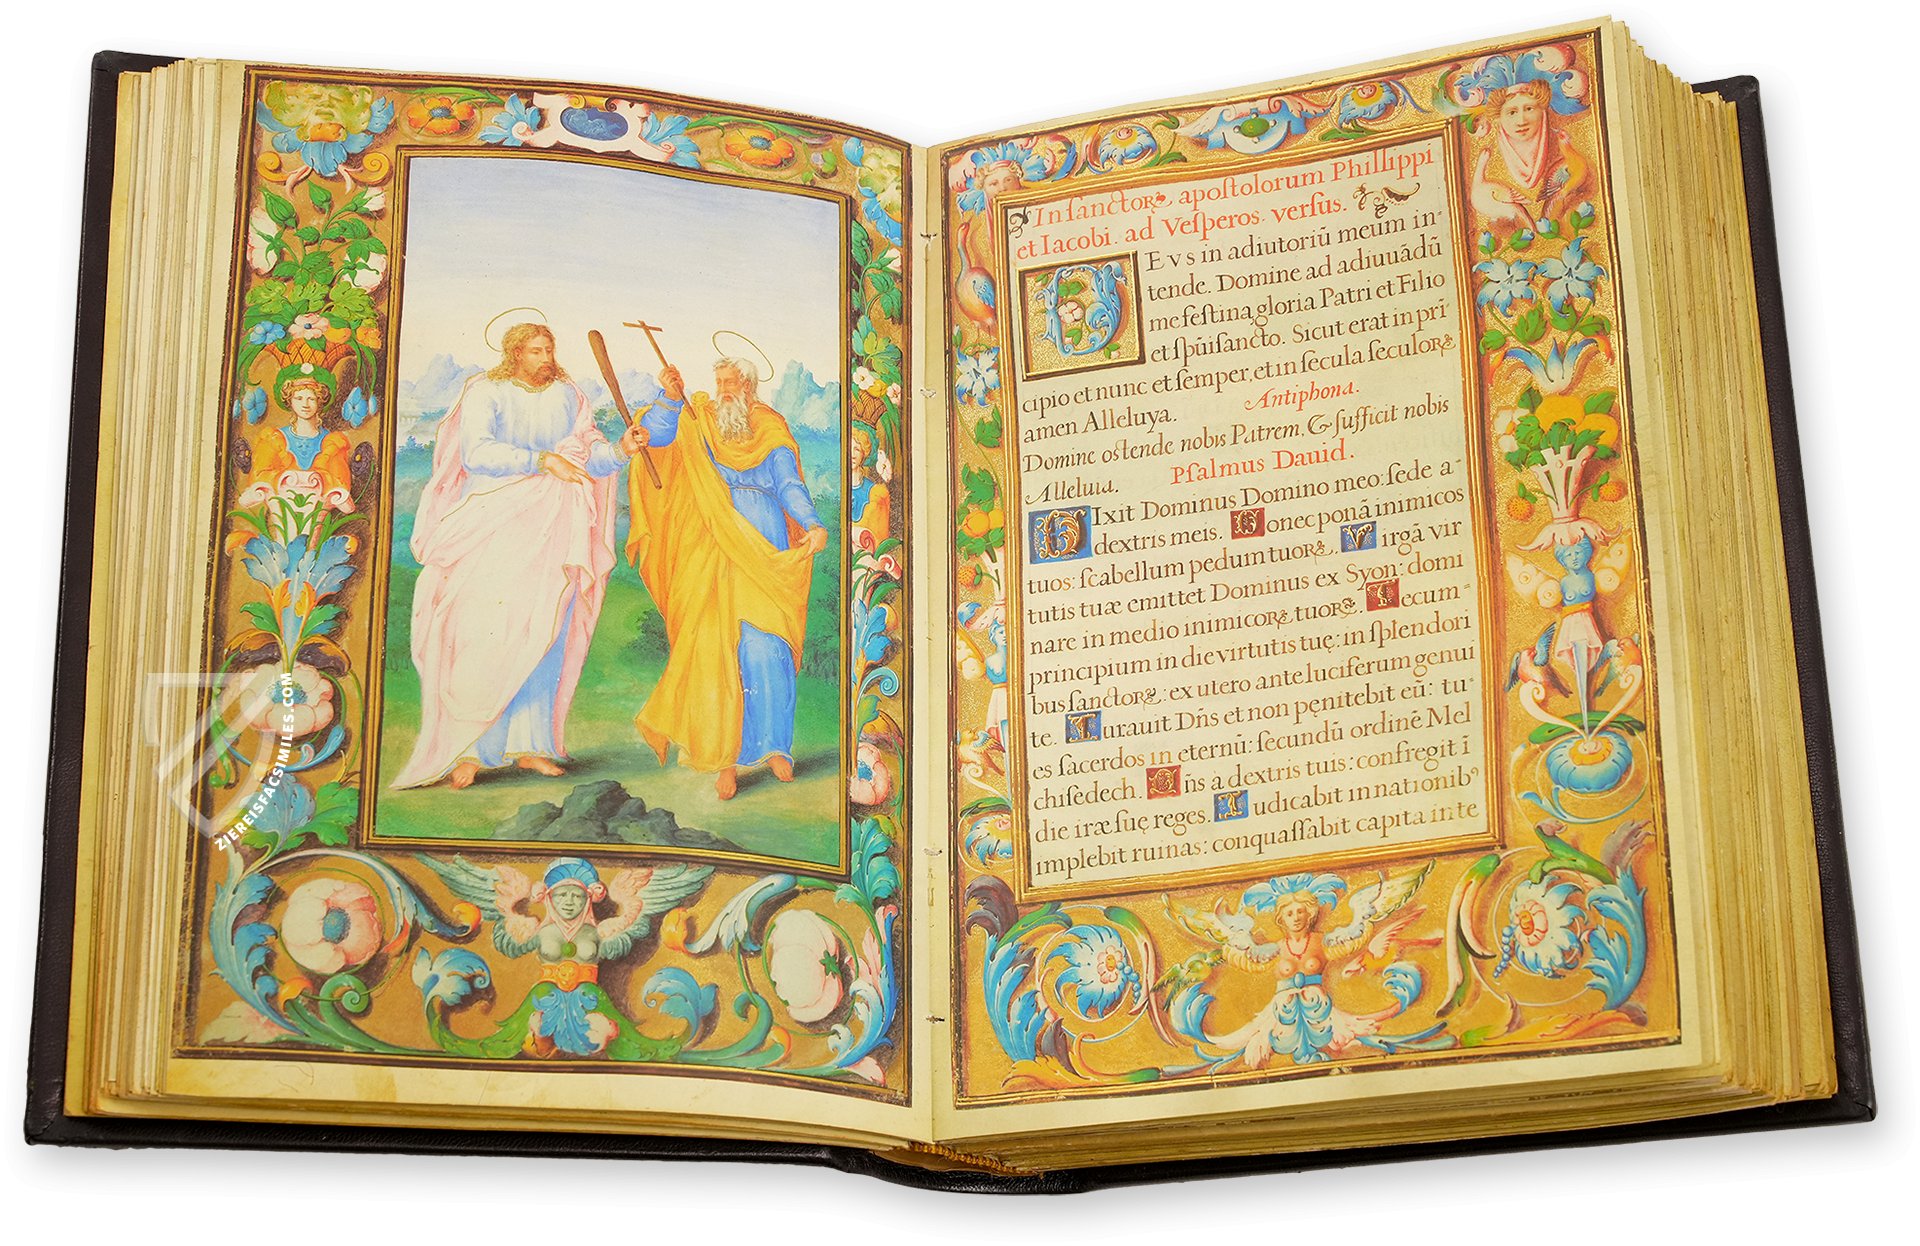 In sanctoꝝ apostolorum Phillippi
et Iacobi. ad Vesperos. versus.
DEVS in adiutoriū meum in-
tende. Domine ad adiuuādū
me festina, gloria Patri et Filio
et spūi sancto. Sicut erat in prī
cipio et nunc et semper, et in secula seculoꝝ
amen Alleluya. Antiphona.
Domine ostende nobis Patrem, & sufficit nobis
Alleluia. Psalmus Dauid.
DIxit Dominus Domino meo: sede a-
dextris meis. Donec ponā inimicos
tuos: scabellum pedum tuoꝝ. Virgā vir
tutis tuæ emittet Dominus ex Syon: domi
nare in medio inimicoꝝ tuoꝝ. Tecum-
principium in die virtutis tuę: in splendori
bus sanctoꝝ: ex utero ante luciferum genui
te. Iurauit Dn̄s et non pęnitebit eū: tu-
es sacerdos in eternū: secundū ordinē Mel
chisedech. Dn̄s a dextris tuis: confregit ī
die iræ suę reges. Iudicabit in nationibꝰ
implebit ruinas: conquassabit capita in te
ZIEREISFACSIMILES.COM